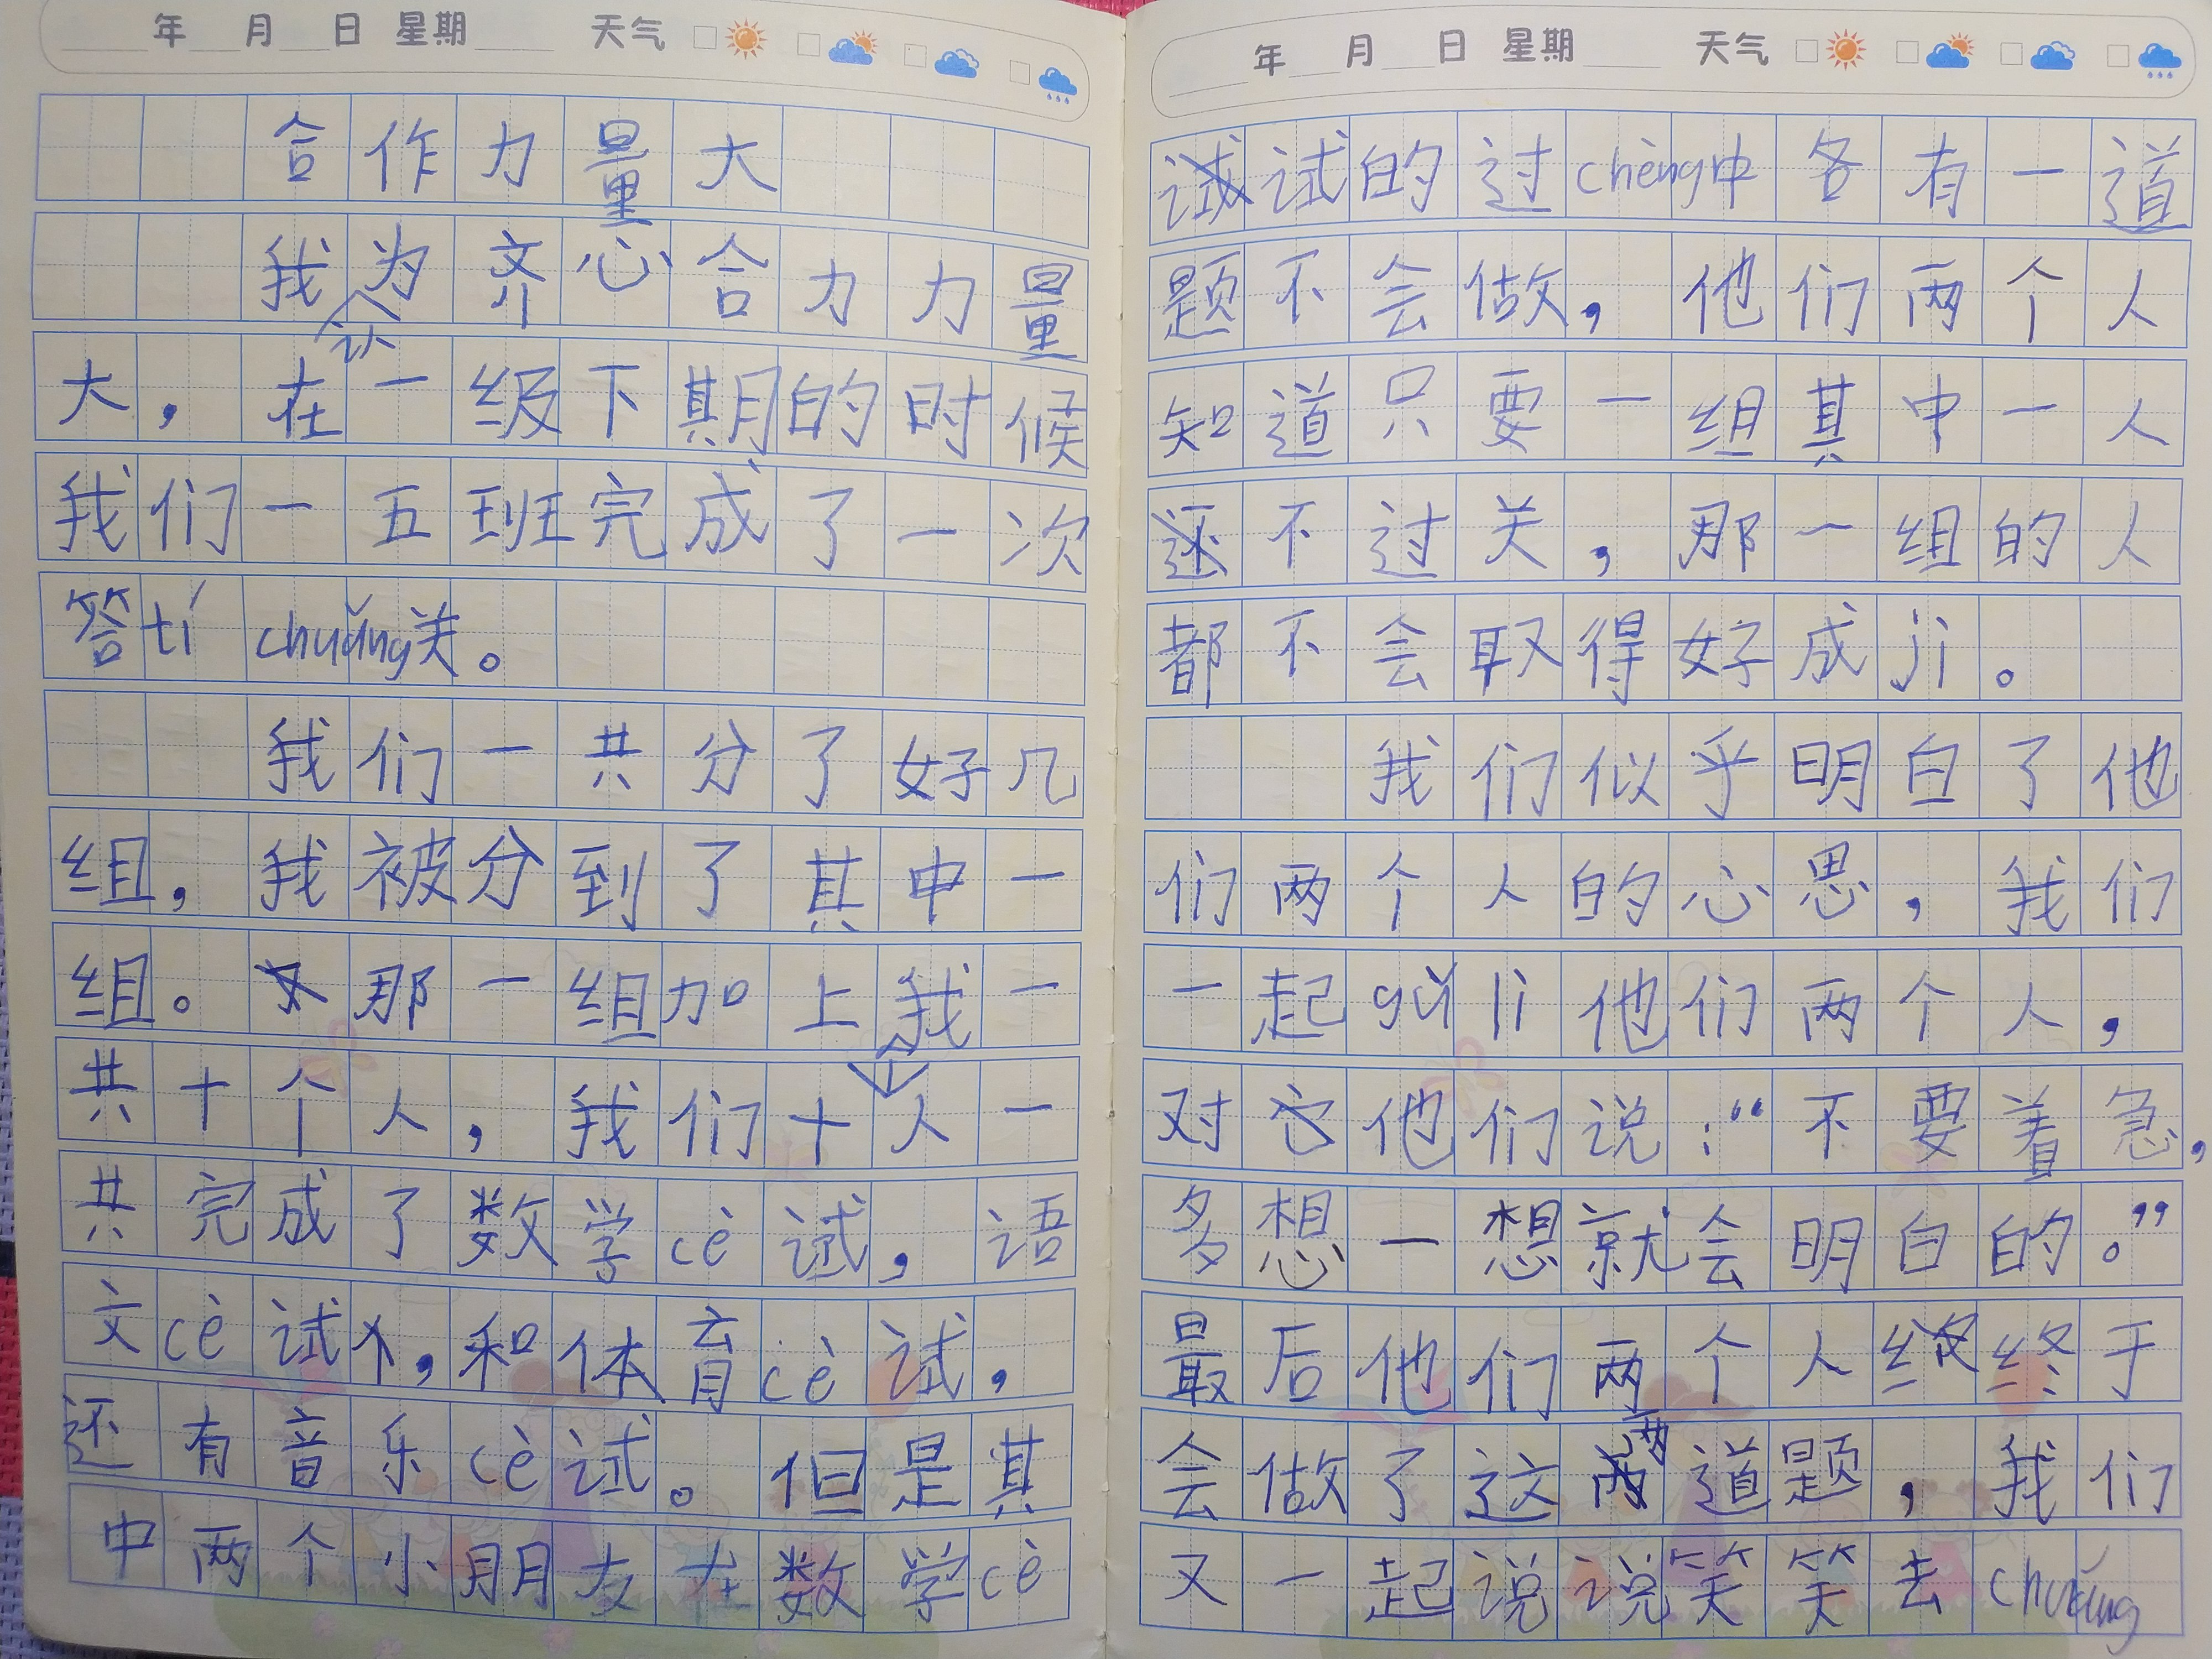 年 月 日 星期 天气
合作力量大
我认为齐心合力力量
大，在一级下期的时候
我们一五班完成了一次
答tí chuǎng关。
我们一共分了好几
组，我被分到了其中一
组。那一组加上我一
共十个人，我们十人一
共完成了数学cè试，语
文cè试，和体育cè试，
还有音乐cè试。但是其
中两个小朋友在数学cè
年 月 日 星期 天气
试的过chèng中各有一道
题不会做，他们两个人
知道只要一组其中一人
不过关，那一组的人
都不会取得好成jì。
我们似乎明白了他
们两个人的心思，我们
一起gǔ lì他们两个人，
对他们说：“不要着急，
多想一想就会明白的。”
最后他们两个人终于
会做了这两道题，我们
又一起说说笑笑去chuǎng